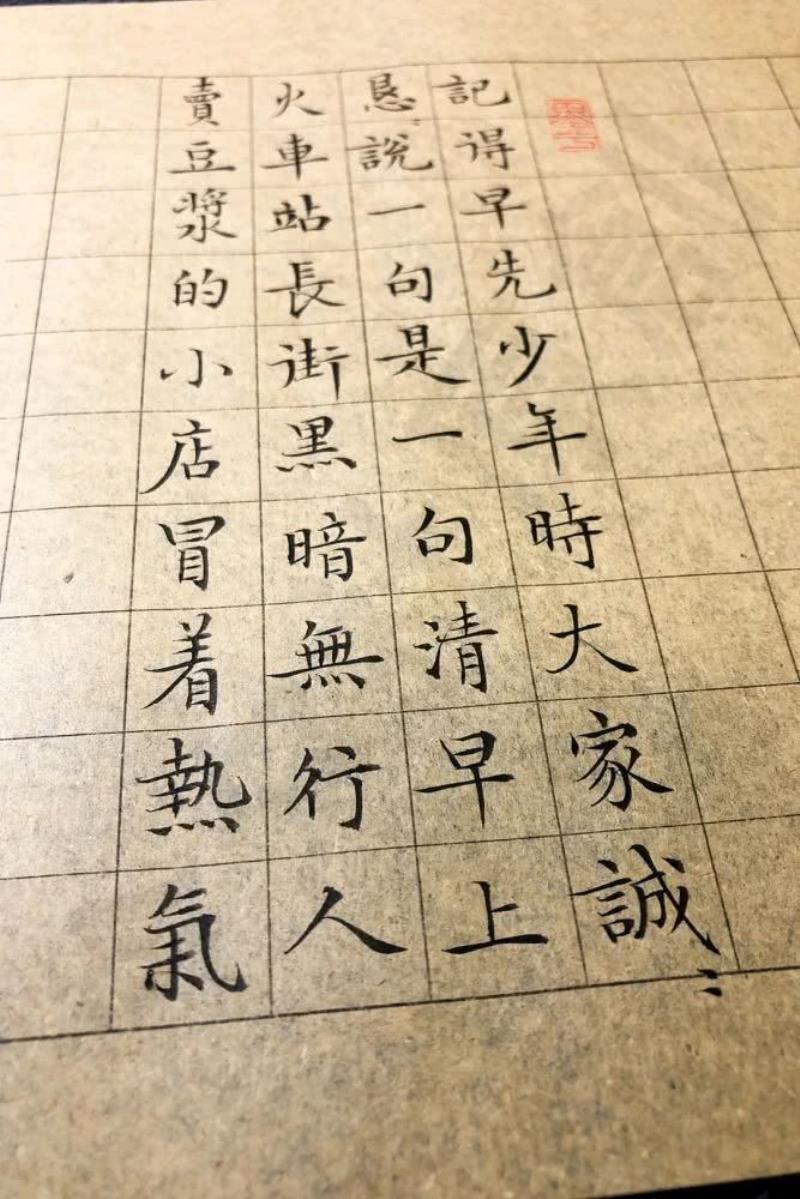 記得早先少年時大家誠〻
懇〻說一句是一句清早上
火車站長街黑暗無行人
賣豆漿的小店冒着熱氣